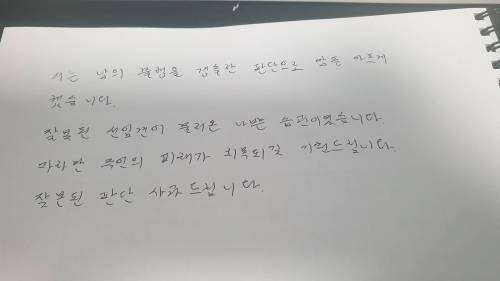 저는 남의 불행을 경솔한 판단으로 맘을 아프게
했습니다.
잘못된 선입견이 불러온 나쁜 습관이었습니다.
주인의 피해가 회복되길 기원드립니다.
잘못된 판단 사과드립니다.